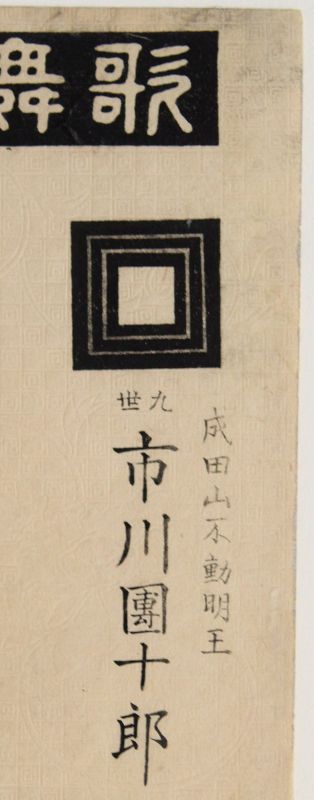 歌舞
成田山不動明王
九世
市川團十郎